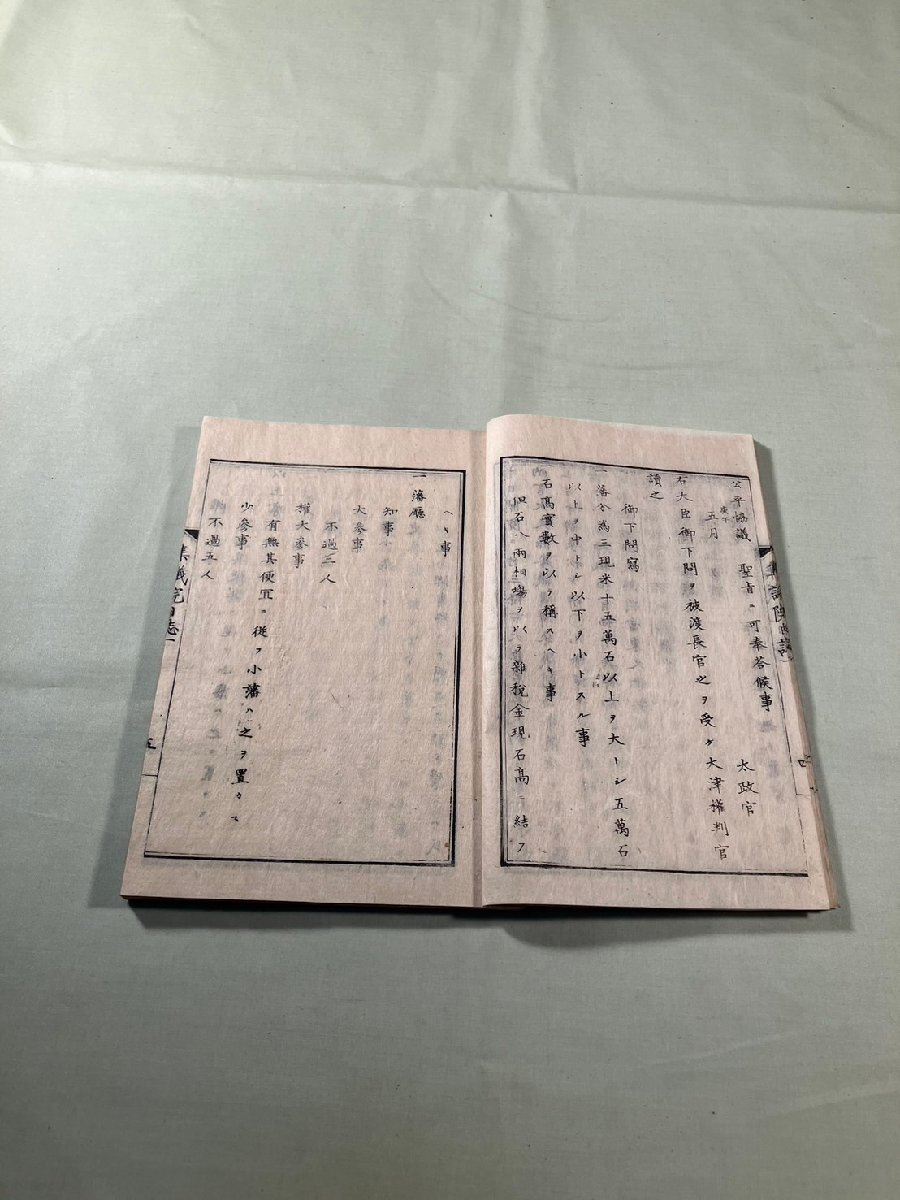 公平協議　聖旨ニ可奉答候事
五月　太政官
右大臣御下問ヲ被渡長官之ヲ受ケ大津權判官
讀之
御下問寫
一藩分為三現米十五萬石以上ヲ大トシ五萬石
以上ヲ中トシ以下ヲ小トスル事
石髙實數ヲ以ヲ稱スヘキ事
但石八兩相場ヲ以ヲ雜稅金現石髙ニ結フ
ヘキ事
一藩廳
知事
大參事
不過二人
權大參事
有無其便宜ニ從フ小藩ハ之ヲ置カス
少參事
不過五人
集議院日誌
四
集議院日誌一
五